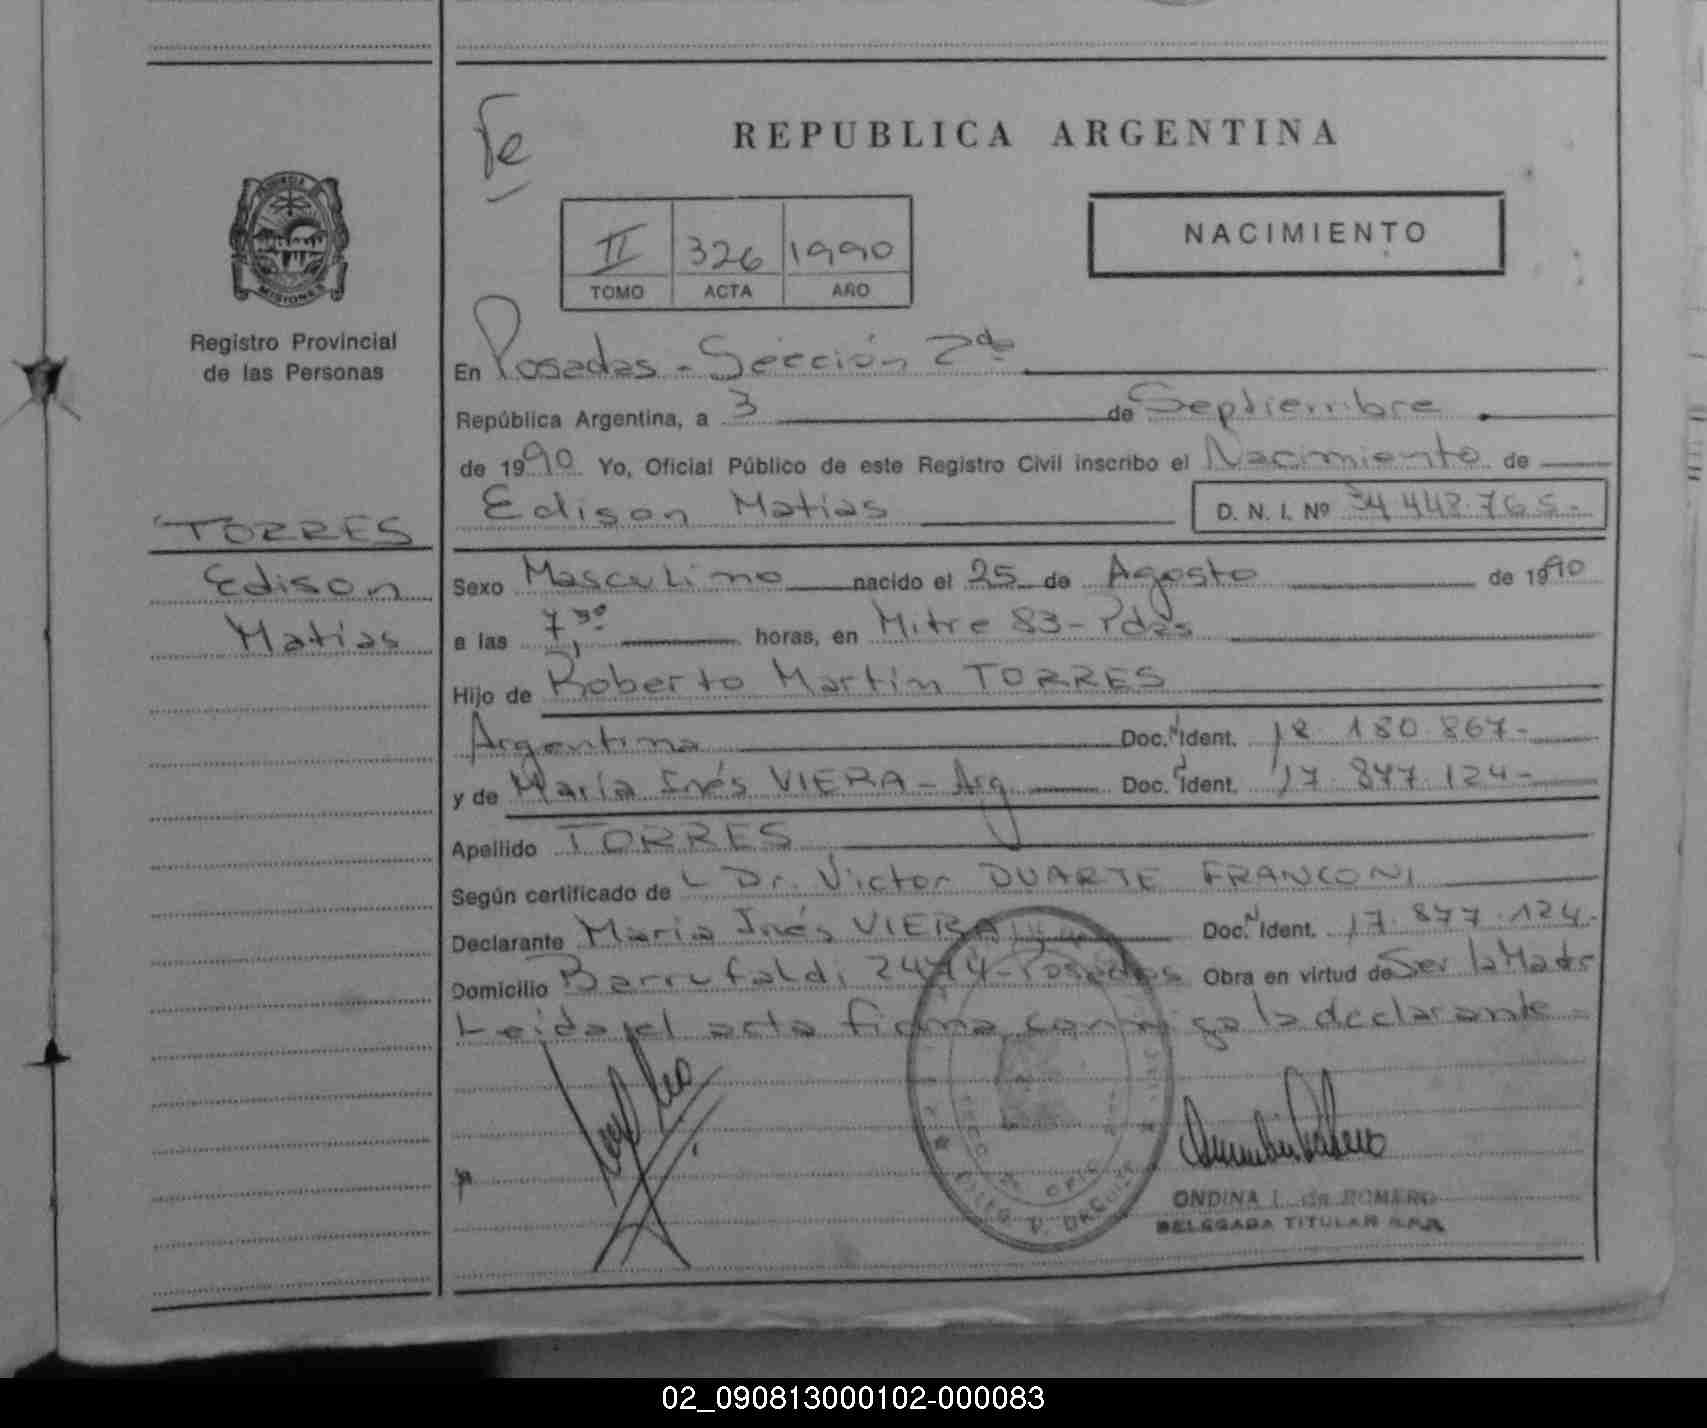 Fe
REPUBLICA ARGENTINA
PROVINCIA
MISIONES
Registro Provincial
de las Personas
II 326 1990
TOMO ACTA AÑO
NACIMIENTO
En Posadas - Sección 2da
República Argentina, a 3 de Septiembre
de 1990 Yo, Oficial Público de este Registro Civil inscribo el Nacimiento de
Edison Matías D. N. I. Nº 34.448.765-
TORRES
Edison
Matías
Sexo Masculino nacido el 25 de Agosto de 1990
a las 7,30 horas, en Mitre 83 - Pdas
Hijo de Roberto Martín TORRES
Argentina Doc. N Ident. 18.180.867-
y de María Inés VIERA - Arg Doc. Ident. 17.877.124-
Apellido TORRES
Según certificado de L Dr. Victor DUARTE FRANCONI
Declarante María Inés VIERA Doc. N Ident. 17.877.124-
Domicilio Barrufaldi 2474 - Posadas Obra en virtud de Ser la Madre
Leida el acta firma conmigo la declarante -
ONDINA I. de ROMERO
DELEGADA TITULAR R.P.P.
02_090813000102-000083